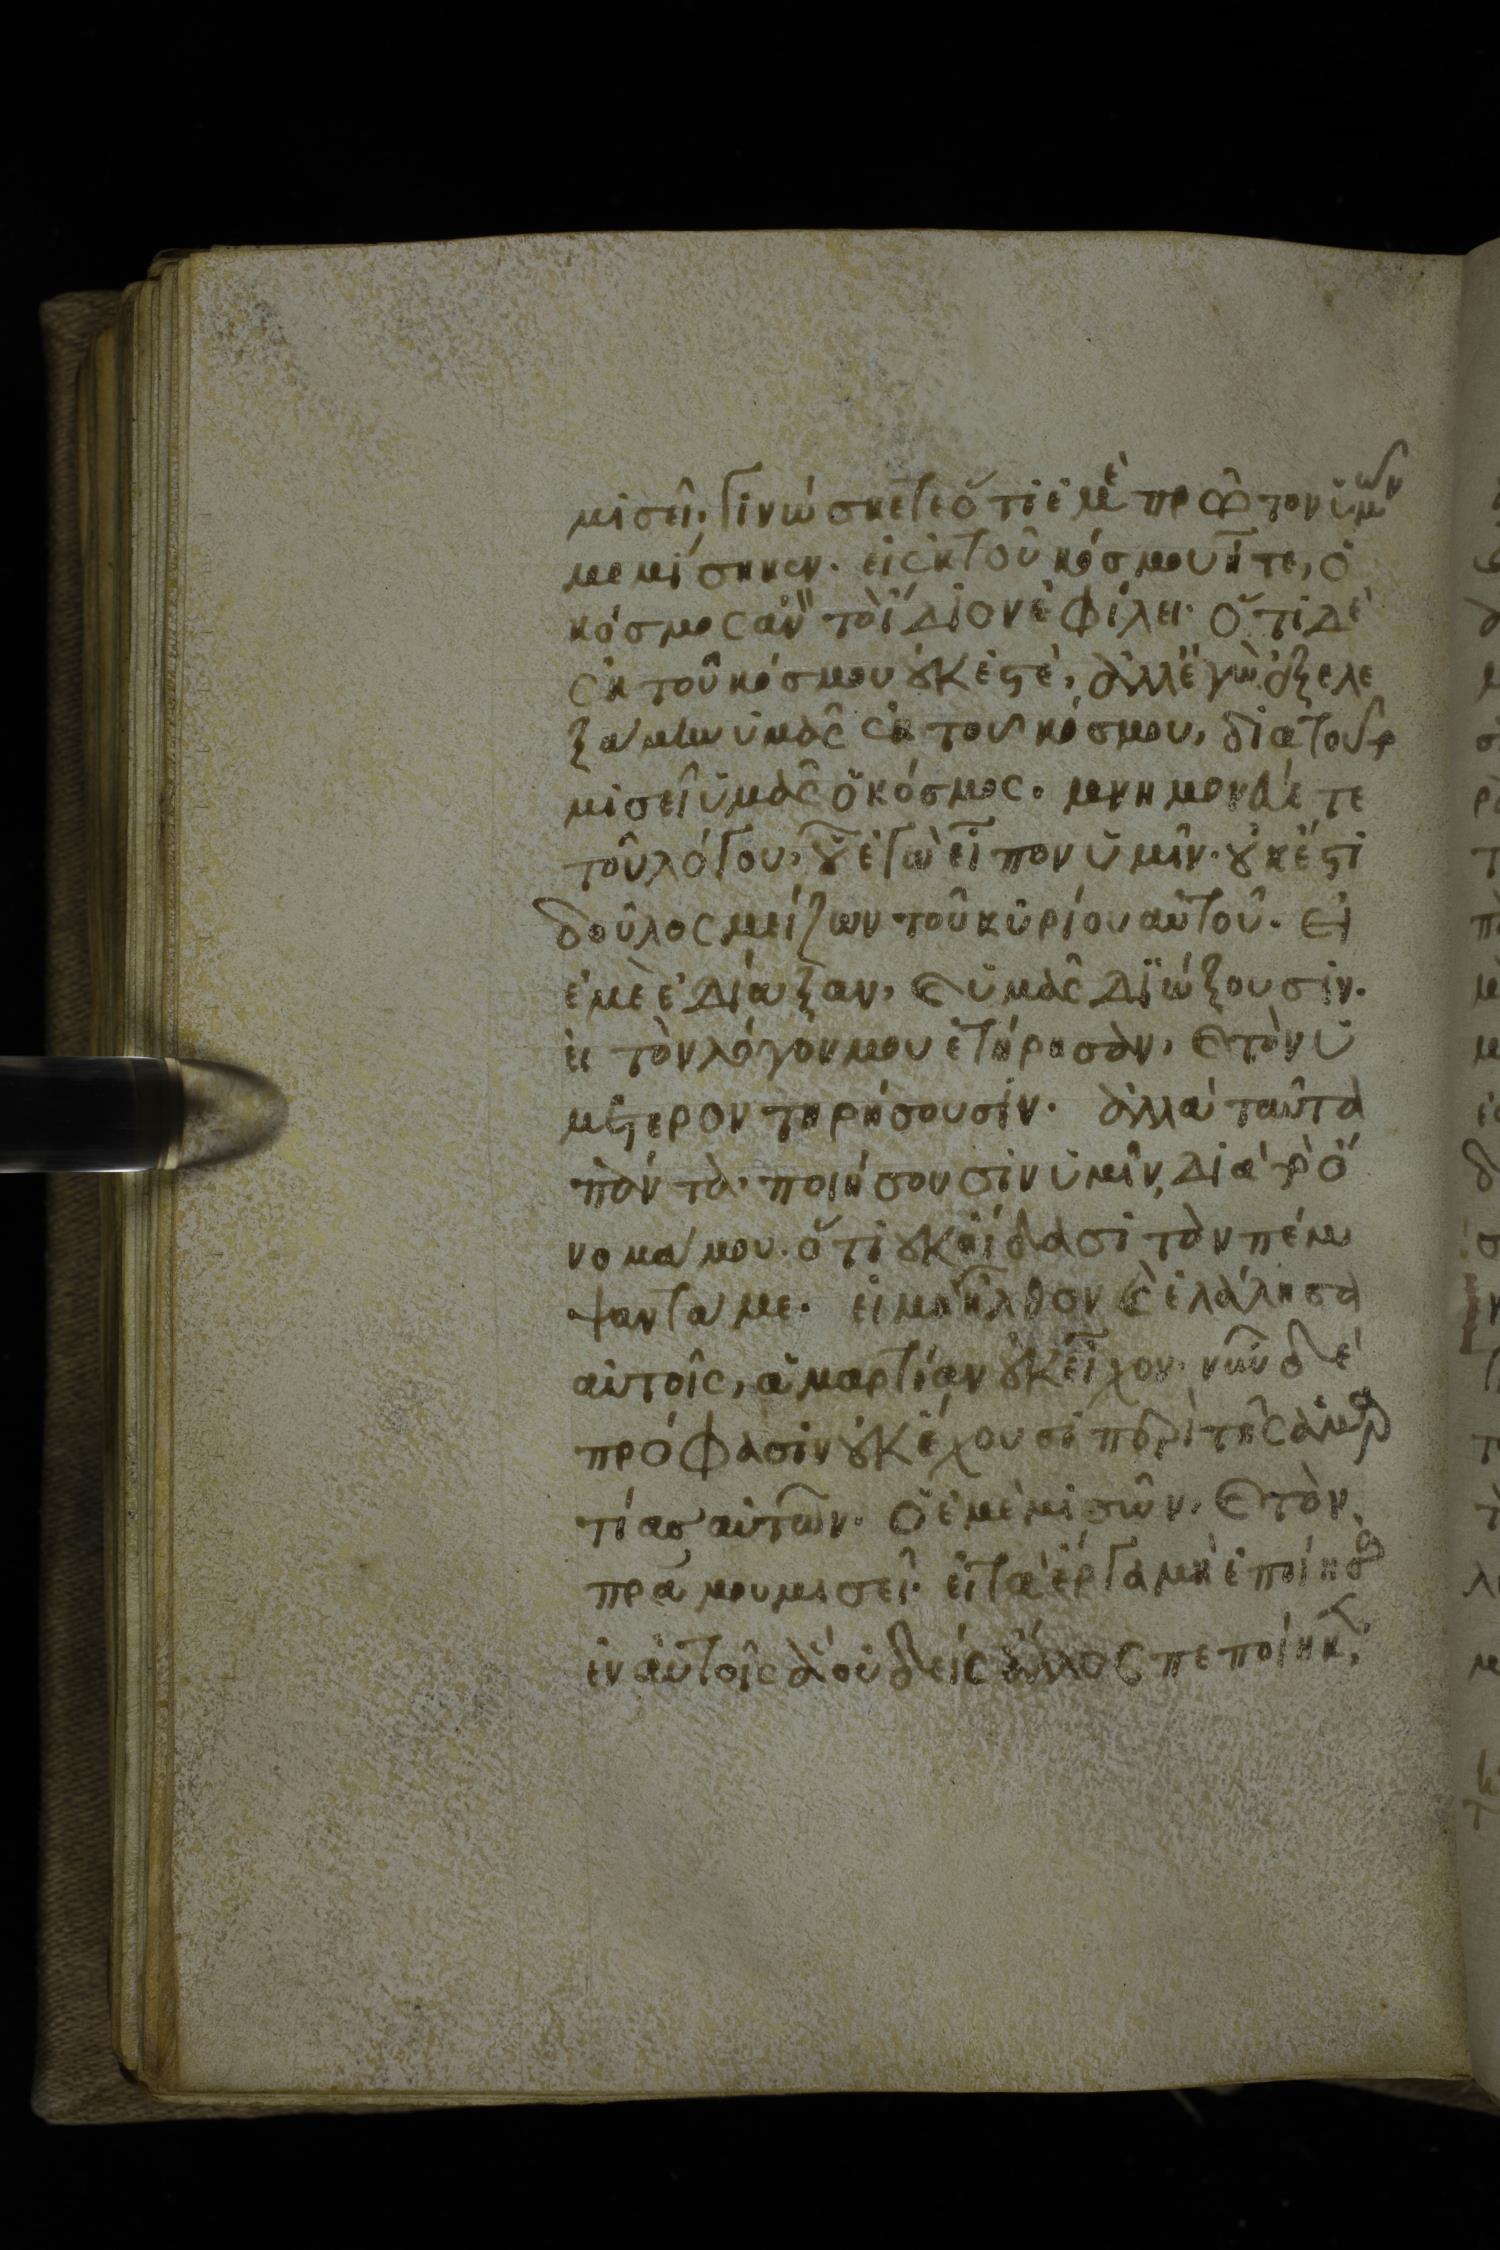 μισεῖ, γινώσκετε ὅτι ἐμὲ πρῶτον ὑμῶν
μεμίσηκεν. εἰ ἐκ τοῦ κόσμου ἦτε, ὁ
κόσμος ἂν τὸ ἴδιον ἐφίλει. ὅτι δὲ
ἐκ τοῦ κόσμου οὐκ ἐστὲ, ἀλλ' ἐγὼ ἐξελε
ξάμην ὑμᾶς ἐκ τοῦ κόσμου, διατοῦτο
μισεῖ ὑμᾶς ὁ κόσμος. μνημονεύετε
τοῦ λόγου, οὗ ἐγὼ εἶπον ὑμῖν. οὐκ ἔστι
δοῦλος μείζων τοῦ κυρίου αὐτοῦ. Εἰ
ἐμὲ ἐδίωξαν, καὶ ὑμᾶς διώξουσιν.
εἰ τὸν λόγον μου ἐτήρησαν, καὶ τὸν ὑ
μέτερον τηρήσουσιν. ἀλλὰ ταῦτα
πάντα ποιήσουσιν ὑμῖν, διὰ τὸ ὄ
νομά μου. ὅτι οὐκ οἴδασι τὸν πέμ
ψαντά με. εἰ μὴ ἦλθον καὶ ἐλάλησα
αὐτοῖς, ἁμαρτίαν οὐκ εἶχον. νῦν δὲ
πρόφασιν οὐκ ἔχουσι περὶ τῆς ἁμαρ
τίας αὐτῶν. ὁ ἐμὲ μισῶν, καὶ τὸν
πρα μου μισεῖ. εἰ τὰ ἔργα μὴ ἐποίησα
ἐν αὐτοῖς ἃ οὐδεὶς ἄλλος πεποίηκεν,